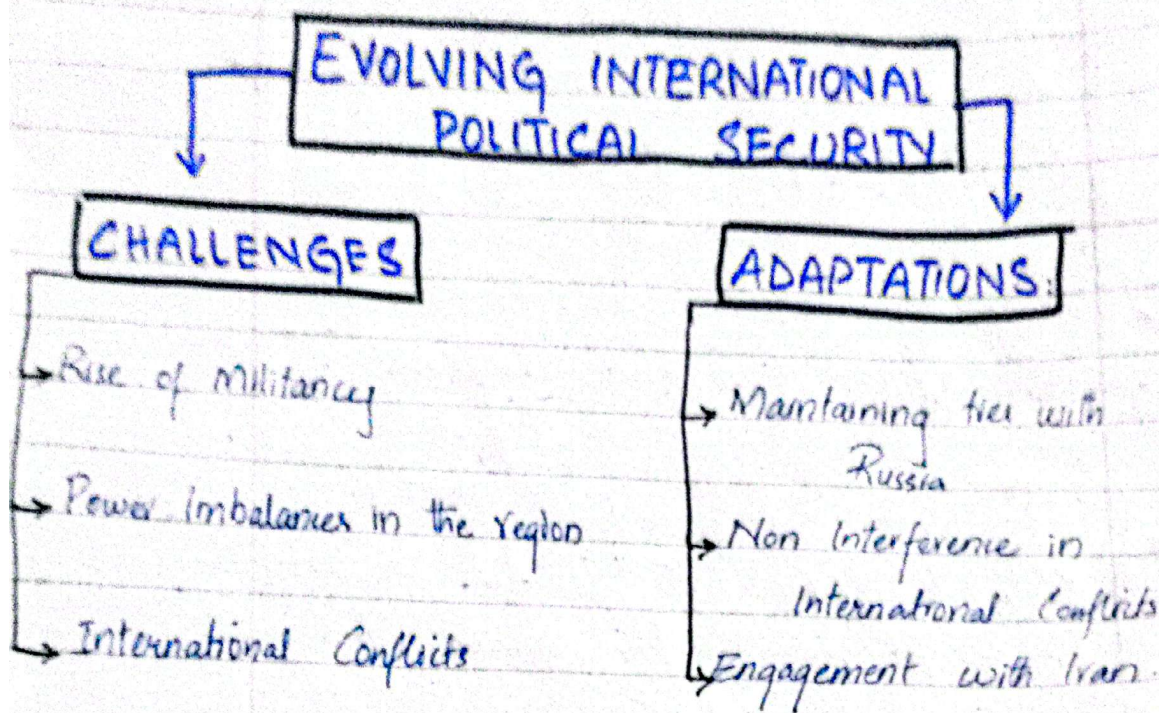 EVOLVING INTERNATIONAL
POLITICAL SECURITY
CHALLENGES
Rise of Militancy
Power imbalances in the region
International Conflicts
ADAPTATIONS:
Maintaining ties with
Russia
Non Interference in
International Conflicts
Engagement with Iran.